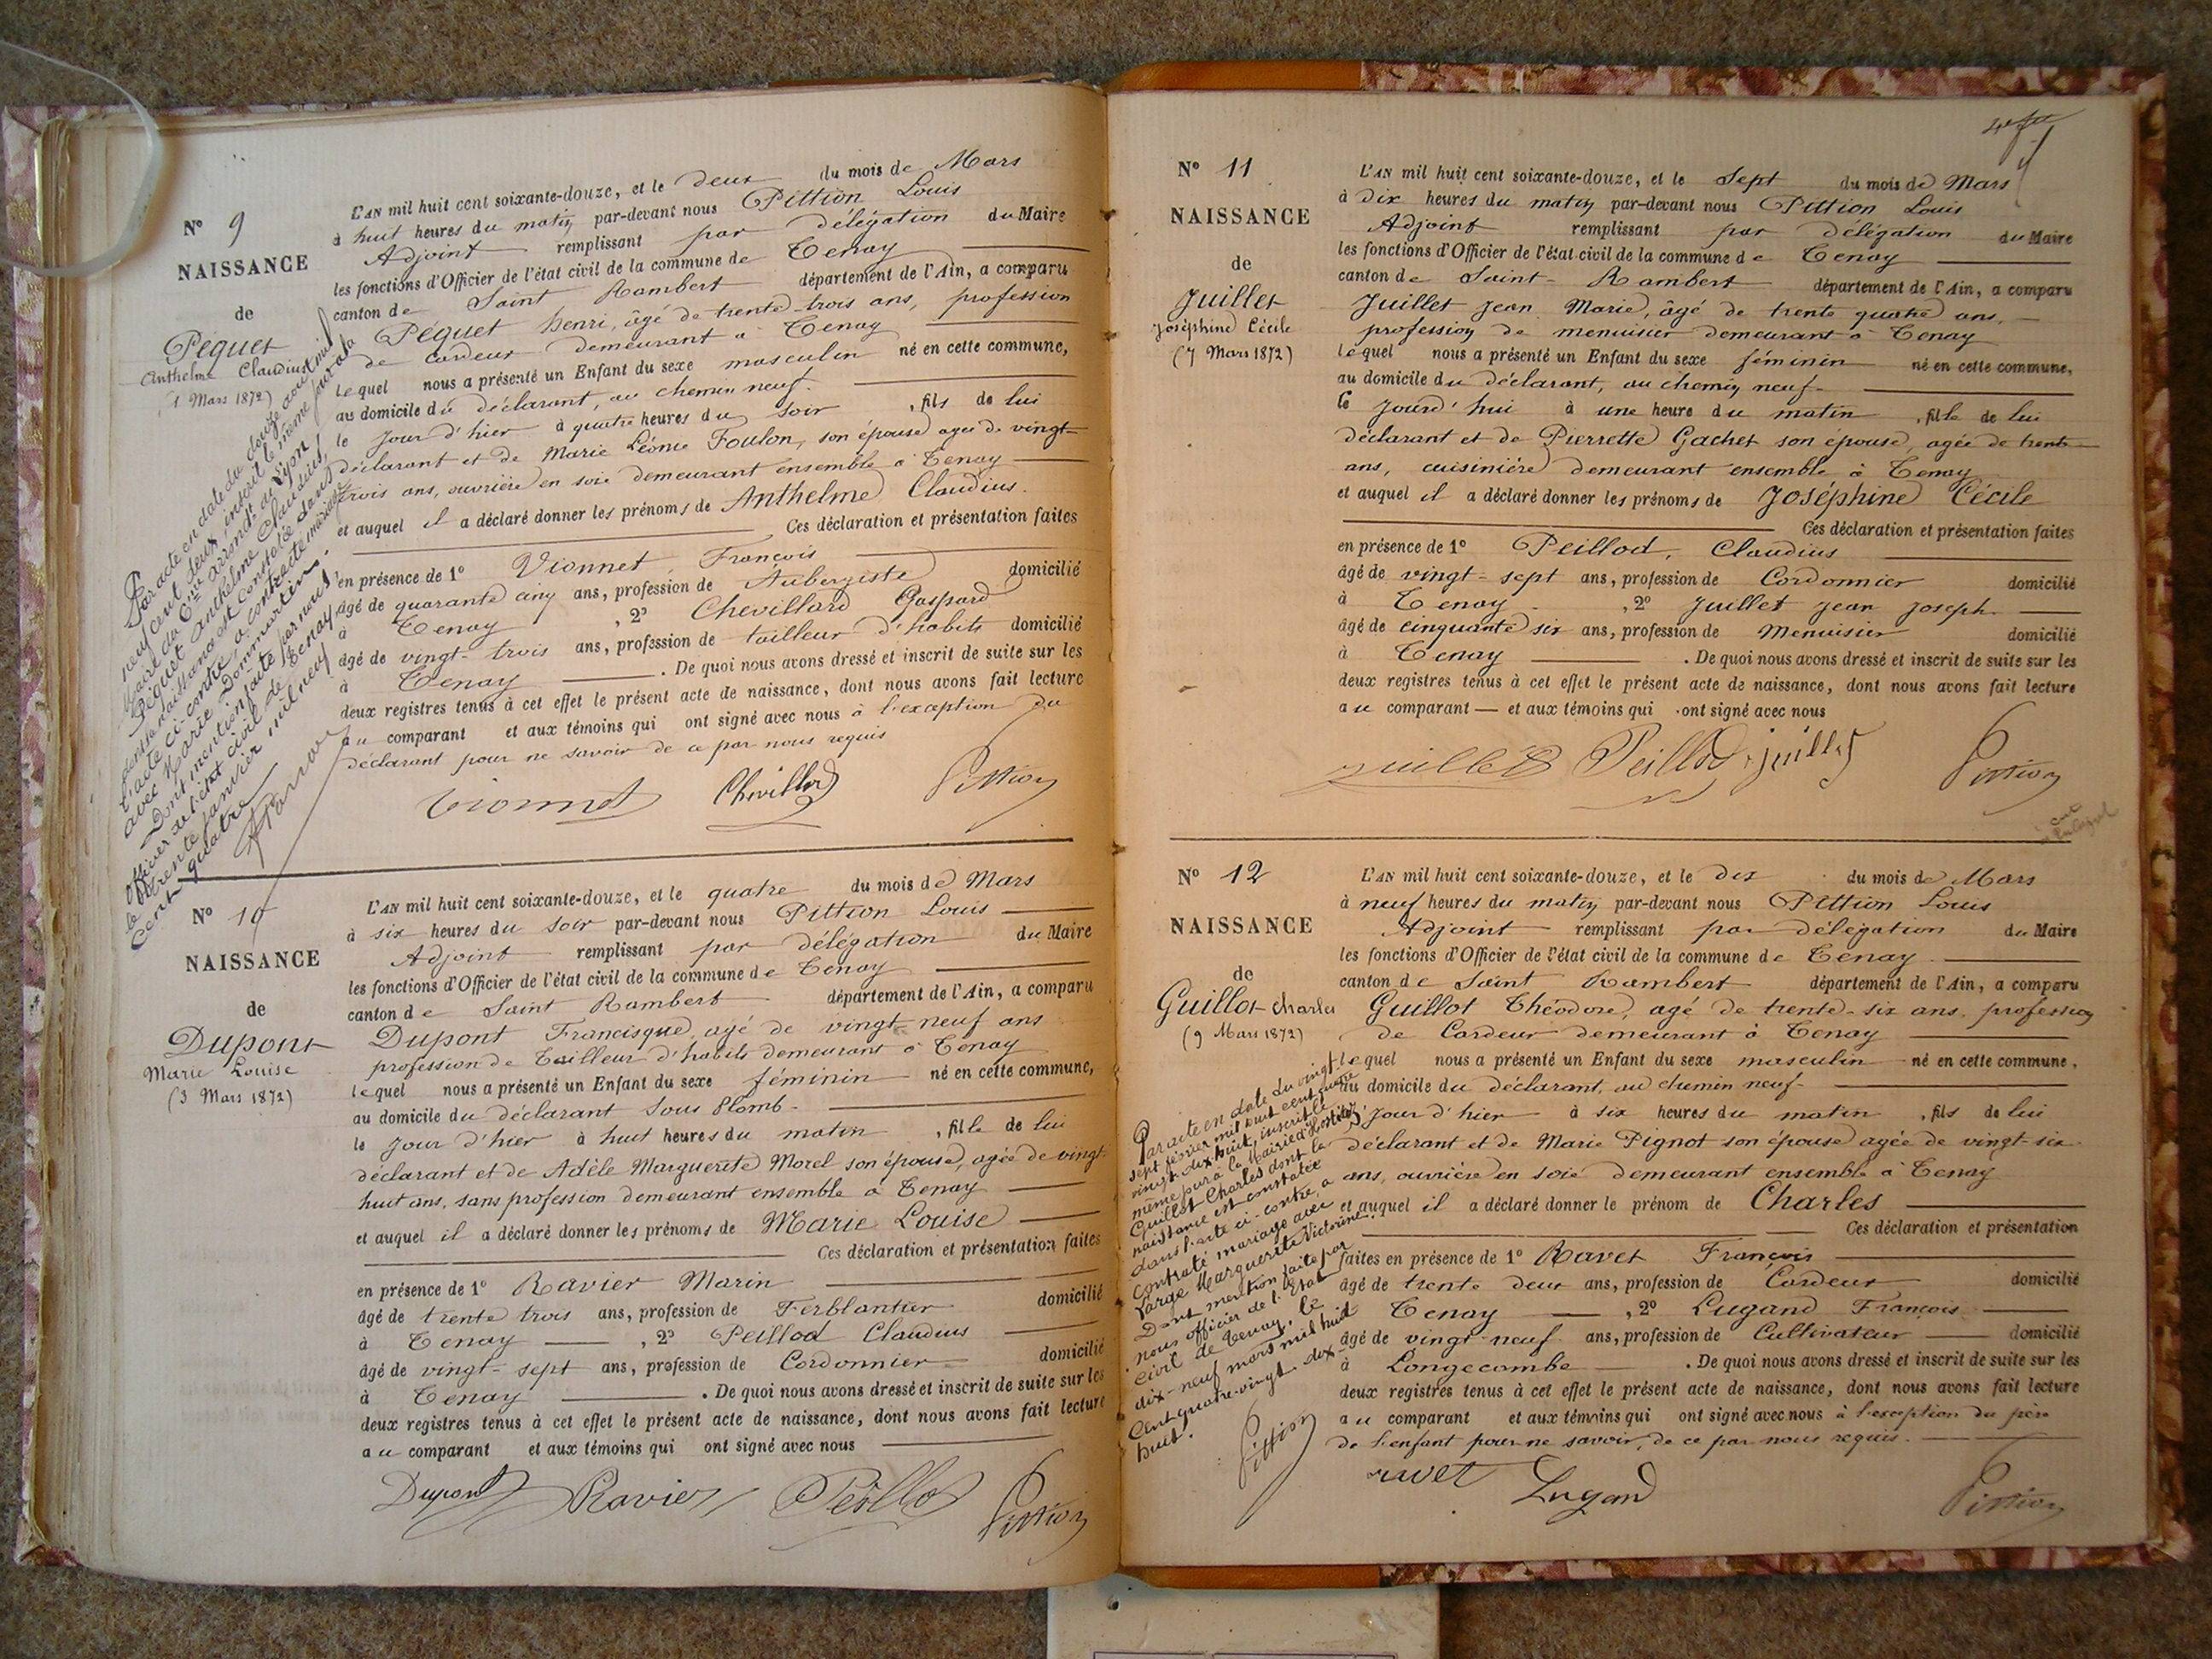 N° 9
NAISSANCE
de
Péguet
Anthelme Claudius
(1 Mars 1872)
Par acte en date du douze août mil
neuf cent deux, inscrit le même jour à la
Mairie du 6me arrondt de Lyon
Péguet Anthelme Claudius,
dont la naissance est constatée dans
l'acte ci-contre, a contracté mariage
avec Marie Dommartin.
Dont mention faite par nous
officier de l'état civil de Tenay,
le trente janvier mil neuf
cent quatre
L'AN mil huit cent soixante-douze, et le deux du mois de Mars
à huit heures du matin par-devant nous Pittion Louis
Adjoint remplissant par délégation du Maire
les fonctions d'Officier de l'état civil de la commune de Tenay
canton de Saint Rambert département de l'Ain, a comparu
Péguet Henri, âgé de trente-trois ans, profession
de cardeur demeurant à Tenay
lequel nous a présenté un Enfant du sexe masculin né en cette commune,
au domicile du déclarant, au chemin neuf.
le jour d'hier à quatre heures du soir, fils de lui
déclarant et de Marie Léonie Foulon, son épouse agée de vingt-
trois ans, ouvrière en soie demeurant ensemble à Tenay
et auquel il a déclaré donner les prénoms de Anthelme Claudius.
Ces déclaration et présentation faites
en présence de 1° Vionnet François
âgé de quarante cinq ans, profession de Aubergiste domicilié
à Tenay, 2° Chevillard Gaspard
âgé de vingt-trois ans, profession de tailleur d'habits domicilié
à Tenay. De quoi nous avons dressé et inscrit de suite sur les
deux registres tenus à cet effet le présent acte de naissance, dont nous avons fait lecture
au comparant et aux témoins qui ont signé avec nous à l'exception du
déclarant pour ne savoir de ce par nous requis
Vionnet Chevillard Pittion
N° 10
NAISSANCE
de
Dupont
Marie Louise
(3 Mars 1872)
L'AN mil huit cent soixante-douze, et le quatre du mois de Mars
à six heures du soir par-devant nous Pittion Louis
Adjoint remplissant par délégation du Maire
les fonctions d'Officier de l'état civil de la commune de Tenay
canton de Saint Rambert département de l'Ain, a comparu
Dupont Francisque, agé de vingt-neuf ans
profession de Tailleur d'habits demeurant à Tenay
lequel nous a présenté un Enfant du sexe féminin né en cette commune,
au domicile du déclarant Sous Plomb-
le jour d'hier à huit heures du matin, fille de lui
déclarant et de Adèle Marguerite Morel son épouse, agée de vingt-
huit ans, sans profession demeurant ensemble à Tenay
et auquel il a déclaré donner les prénoms de Marie Louise
Ces déclaration et présentation faites
en présence de 1° Ravier Marin
âgé de trente trois ans, profession de Ferblantier domicilié
à Tenay, 2° Peillod Claudius
âgé de vingt-sept ans, profession de Cordonnier domicilié
à Tenay. De quoi nous avons dressé et inscrit de suite sur les
deux registres tenus à cet effet le présent acte de naissance, dont nous avons fait lecture
au comparant et aux témoins qui ont signé avec nous
Dupont Ravier Peillod Pittion
N° 11
NAISSANCE
de
Juillet
Joséphine Cécile
(7 Mars 1872)
L'AN mil huit cent soixante-douze, et le Sept du mois de Mars
à dix heures du matin par-devant nous Pittion Louis
Adjoint remplissant par délégation du Maire
les fonctions d'Officier de l'état civil de la commune de Tenay
canton de Saint-Rambert département de l'Ain, a comparu
Juillet Jean Marie, âgé de trente quatre ans,
profession de menuisier demeurant à Tenay
lequel nous a présenté un Enfant du sexe féminin né en cette commune,
au domicile du déclarant, au chemin neuf-
ce jourd'hui à une heure du matin, fille de lui
déclarant et de Pierrette Gachet son épouse, agée de trente
ans, cuisinière demeurant ensemble à Tenay
et auquel il a déclaré donner les prénoms de Joséphine Cécile
Ces déclaration et présentation faites
en présence de 1° Peillod, Claudius
âgé de vingt-sept ans, profession de Cordonnier domicilié
à Tenay, 2° Juillet Jean Joseph
âgé de cinquante six ans, profession de Menuisier domicilié
à Tenay. De quoi nous avons dressé et inscrit de suite sur les
deux registres tenus à cet effet le présent acte de naissance, dont nous avons fait lecture
au comparant — et aux témoins qui ont signé avec nous
Juillet Peillod juillet Pittion
N° 12
NAISSANCE
de
Guillot Charles
(9 Mars 1872)
Par acte en date du vingt-
sept février mil huit cent quatre
vingt-dix huit, inscrit le
même jour à la Mairie d'
Guillot Charles dont la
naissance est constatée
dans l'acte ci-contre, a
contracté mariage avec
Large Marguerite Victorine.
Dont mention faite par
nous officier de l'Etat
civil de Tenay, le
dix-neuf mars mil huit
cent quatre-vingt-dix-
huit.
Pittion
L'AN mil huit cent soixante-douze, et le dix du mois de Mars
à neuf heures du matin par-devant nous Pittion Louis
Adjoint remplissant par délégation du Maire
les fonctions d'Officier de l'état civil de la commune de Tenay
canton de Saint Rambert département de l'Ain, a comparu
Guillot Théodore, agé de trente-six ans, profession
de Cardeur demeurant à Tenay
lequel nous a présenté un Enfant du sexe masculin né en cette commune,
au domicile du déclarant, au chemin neuf-
le jour d'hier à six heures du matin, fils de lui
déclarant et de Marie Pignot son épouse agée de vingt-six
ans, ouvrière en soie demeurant ensemble à Tenay
et auquel il a déclaré donner le prénom de Charles
Ces déclaration et présentation
faites en présence de 1° Ravet François
âgé de trente deux ans, profession de Cardeur domicilié
à Tenay, 2° Lugand François
âgé de vingt-neuf ans, profession de Cultivateur domicilié
à Longecombe. De quoi nous avons dressé et inscrit de suite sur les
deux registres tenus à cet effet le présent acte de naissance, dont nous avons fait lecture
au comparant et aux témoins qui ont signé avec nous à l'exception du père
de l'enfant pour ne savoir, de ce par nous requis.
ravet Lugand Pittion